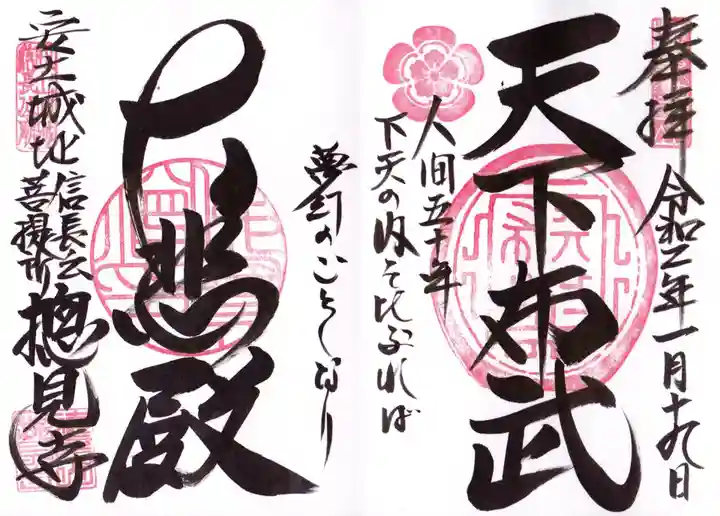 奉拝
令和二年一月十九日
天下布武
人間五十年
下天の内をくらぶれば
夢幻のごとくなり
大悲殿
安土城地
信長公
菩提所
摠見寺